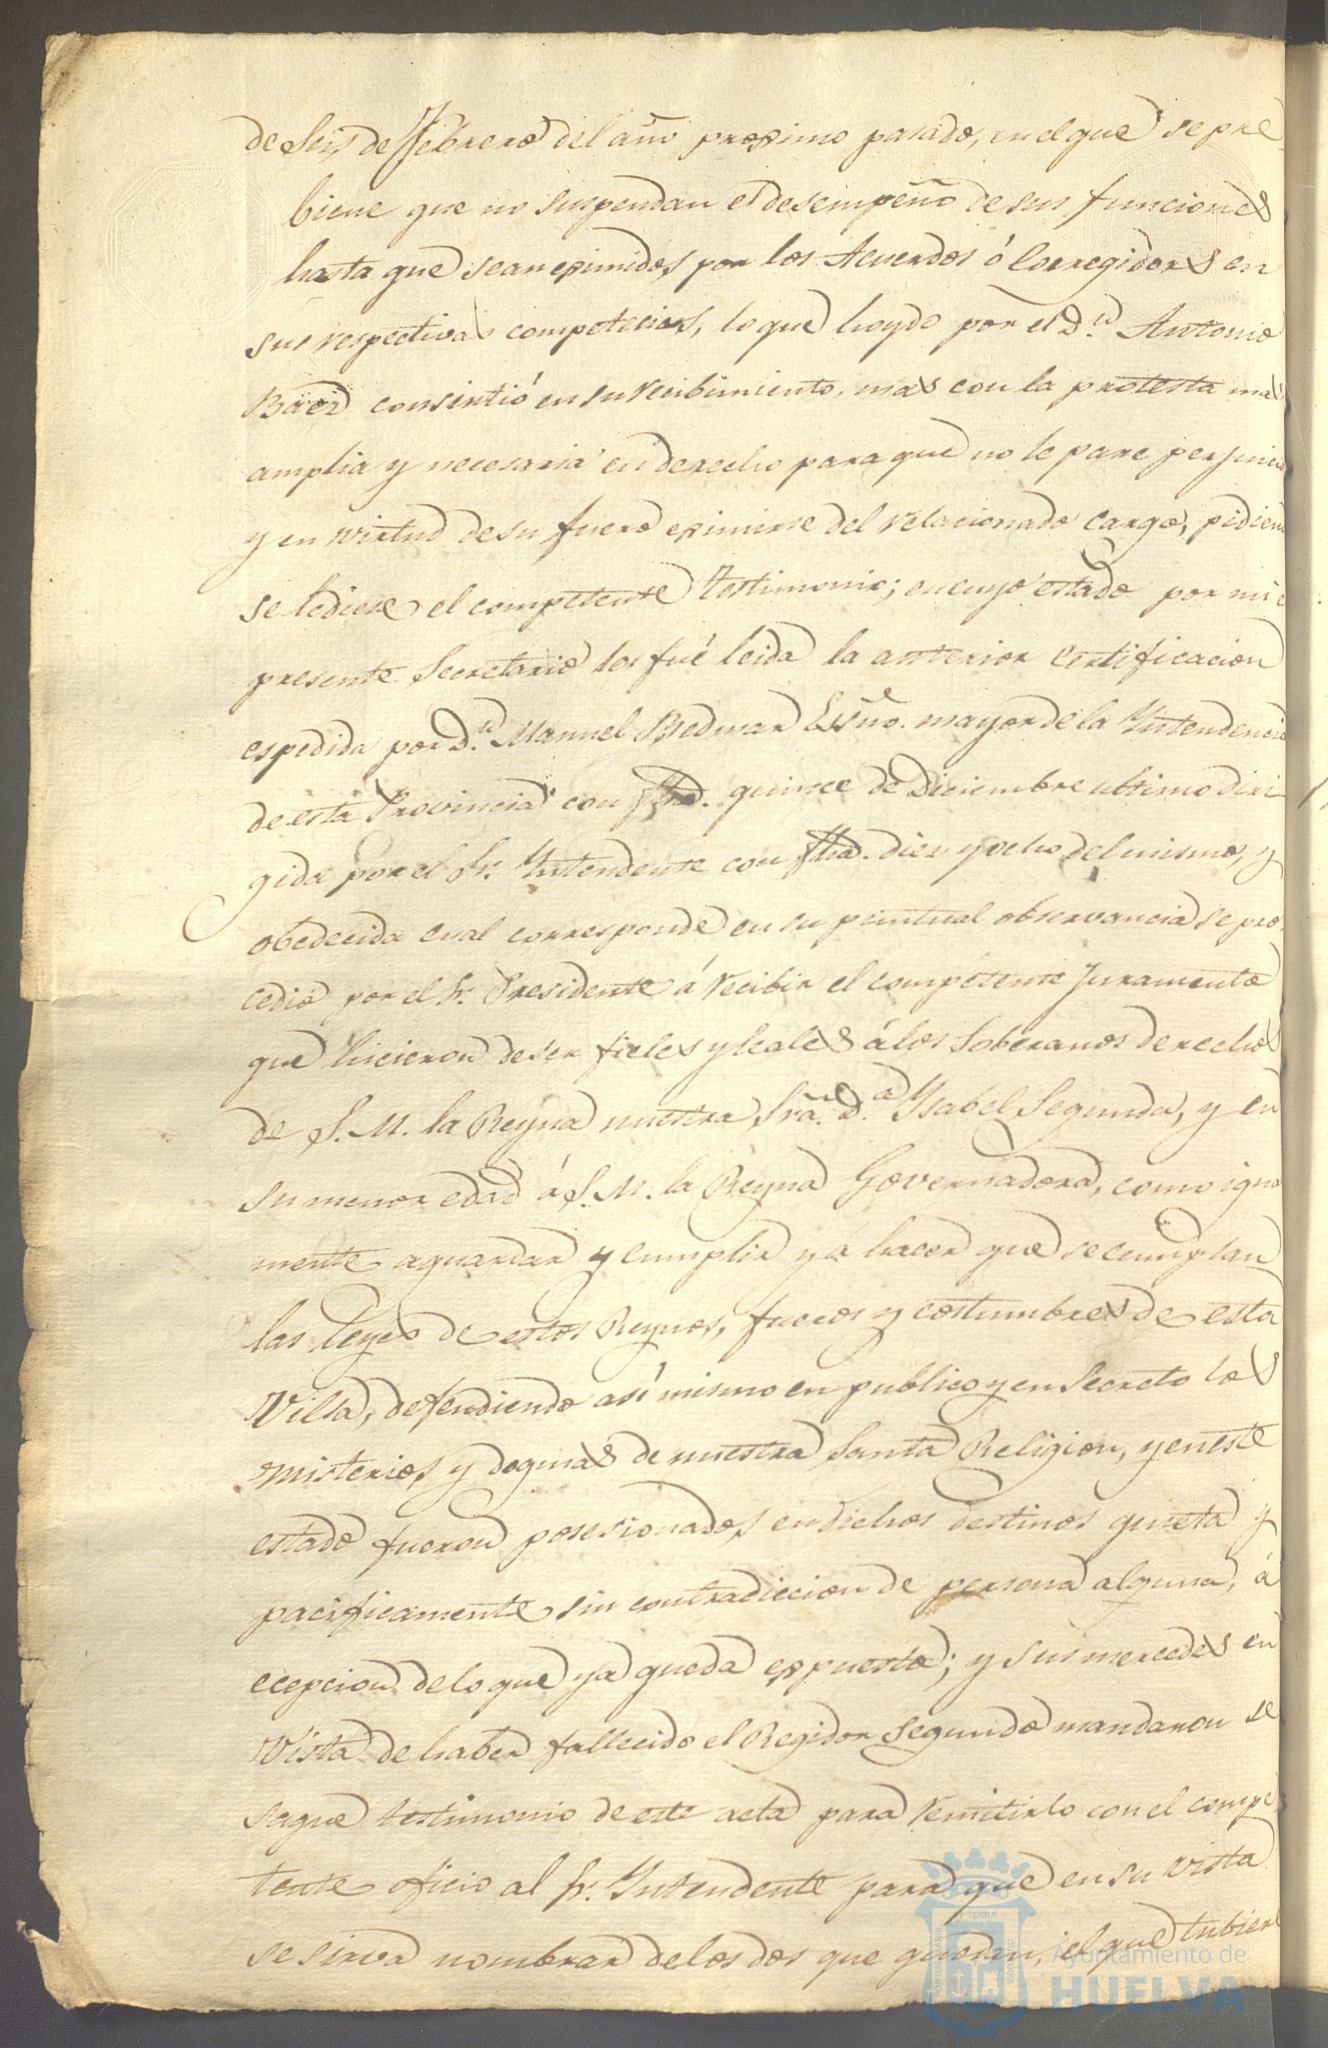 de Seis de Febrero del año proximo pasado, en el que se pre
biene que no suspendan el desempeño de sus funciones
hasta que sean eximidos por los Acuerdos ó Corregidores en
sus respectivas competecias, lo que hoydo por el D.n Antonio
Baez consintió en su recibimiento. mas con la protesta mas
amplia y necesaria en derecho para que no le pare perjuicio
y en virtud de su fuero eximirse del relacionado cargo, pidiend
se lediese el competente testimonio; en cuyo estado por mi e
presente Secretario les fué leida la anterior Certificacion
espedida por D.n Manuel Bedmar Essño. mayor de la Yntendencia
de esta Provincia con fha. quince de Diciembre ultimo diri
gida por el Sr. Yntendente con fha. diez y ocho del mismo, y
obedecida cual corresponde en su puntual observancia se pro
cedio por el Sr. Presidente á recibir el competente Juramento
que hicieron de ser fieles y leales á los Soberanos derechos
de S. M. la Reyna nuestra Sra. D.a Ysabel Segunda, y en
su menor edad á S. M. la Reyna Governadora, como igua
mente aguardar y cumplir y á hacer que se cumplan
las Leyes de estos Reynos, fueros y costumbres de esta
Villa, defendiendo así mismo en publico y en Secreto los
misterios y dogmas de nuestra Santa Religion, y en este
estado fueron posesionados en dichos destinos quieta y
pacificamente sin contradiccion de persona alguna, á
ecepcion de lo que ya queda espuesto; y sus mercedes en
vista de haber fallecido el Regidor Segundo mandaron se
saque testimonio de este acta para remitirlo con el compe
tente oficio al Sr. Yntendente para que en su vista
se sirva nombrar de los dos que quedan, el que tubiere
Ayuntamiento de
HUELVA